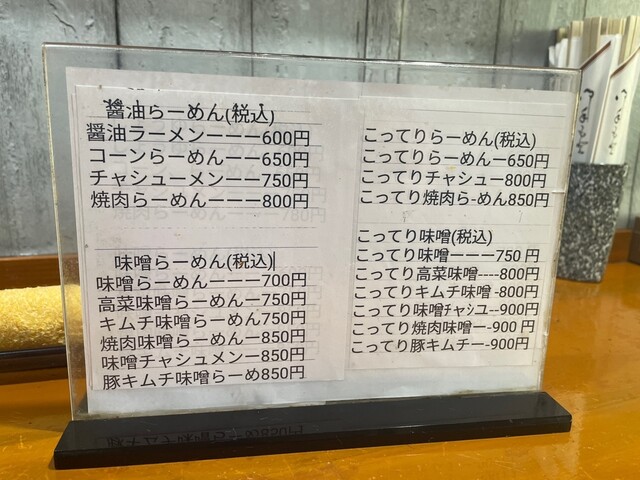 醤油らーめん(税込)
醤油ラーメンーーー600円
コーンらーめんーー650円
チャシューメンーー750円
焼肉らーめんーーー800円
味噌らーめん(税込)
味噌らーめんーーー700円
高菜味噌らーめんー750円
キムチ味噌らーめん750円
焼肉味噌らーめんー850円
味噌チャシュメンー850円
豚キムチ味噌らーめ850円
こってりらーめん(税込)
こってりらーめんー650円
こってりチャシュー800円
こってり焼肉らｰめん850円
こってり味噌(税込)
こってり味噌ーーー750円
こってり高菜味噌----800円
こってりキムチ味噌-800円
こってり味噌ﾁｬｼユ--900円
こってり焼肉味噌ー-900円
こってり豚キムチー-900円